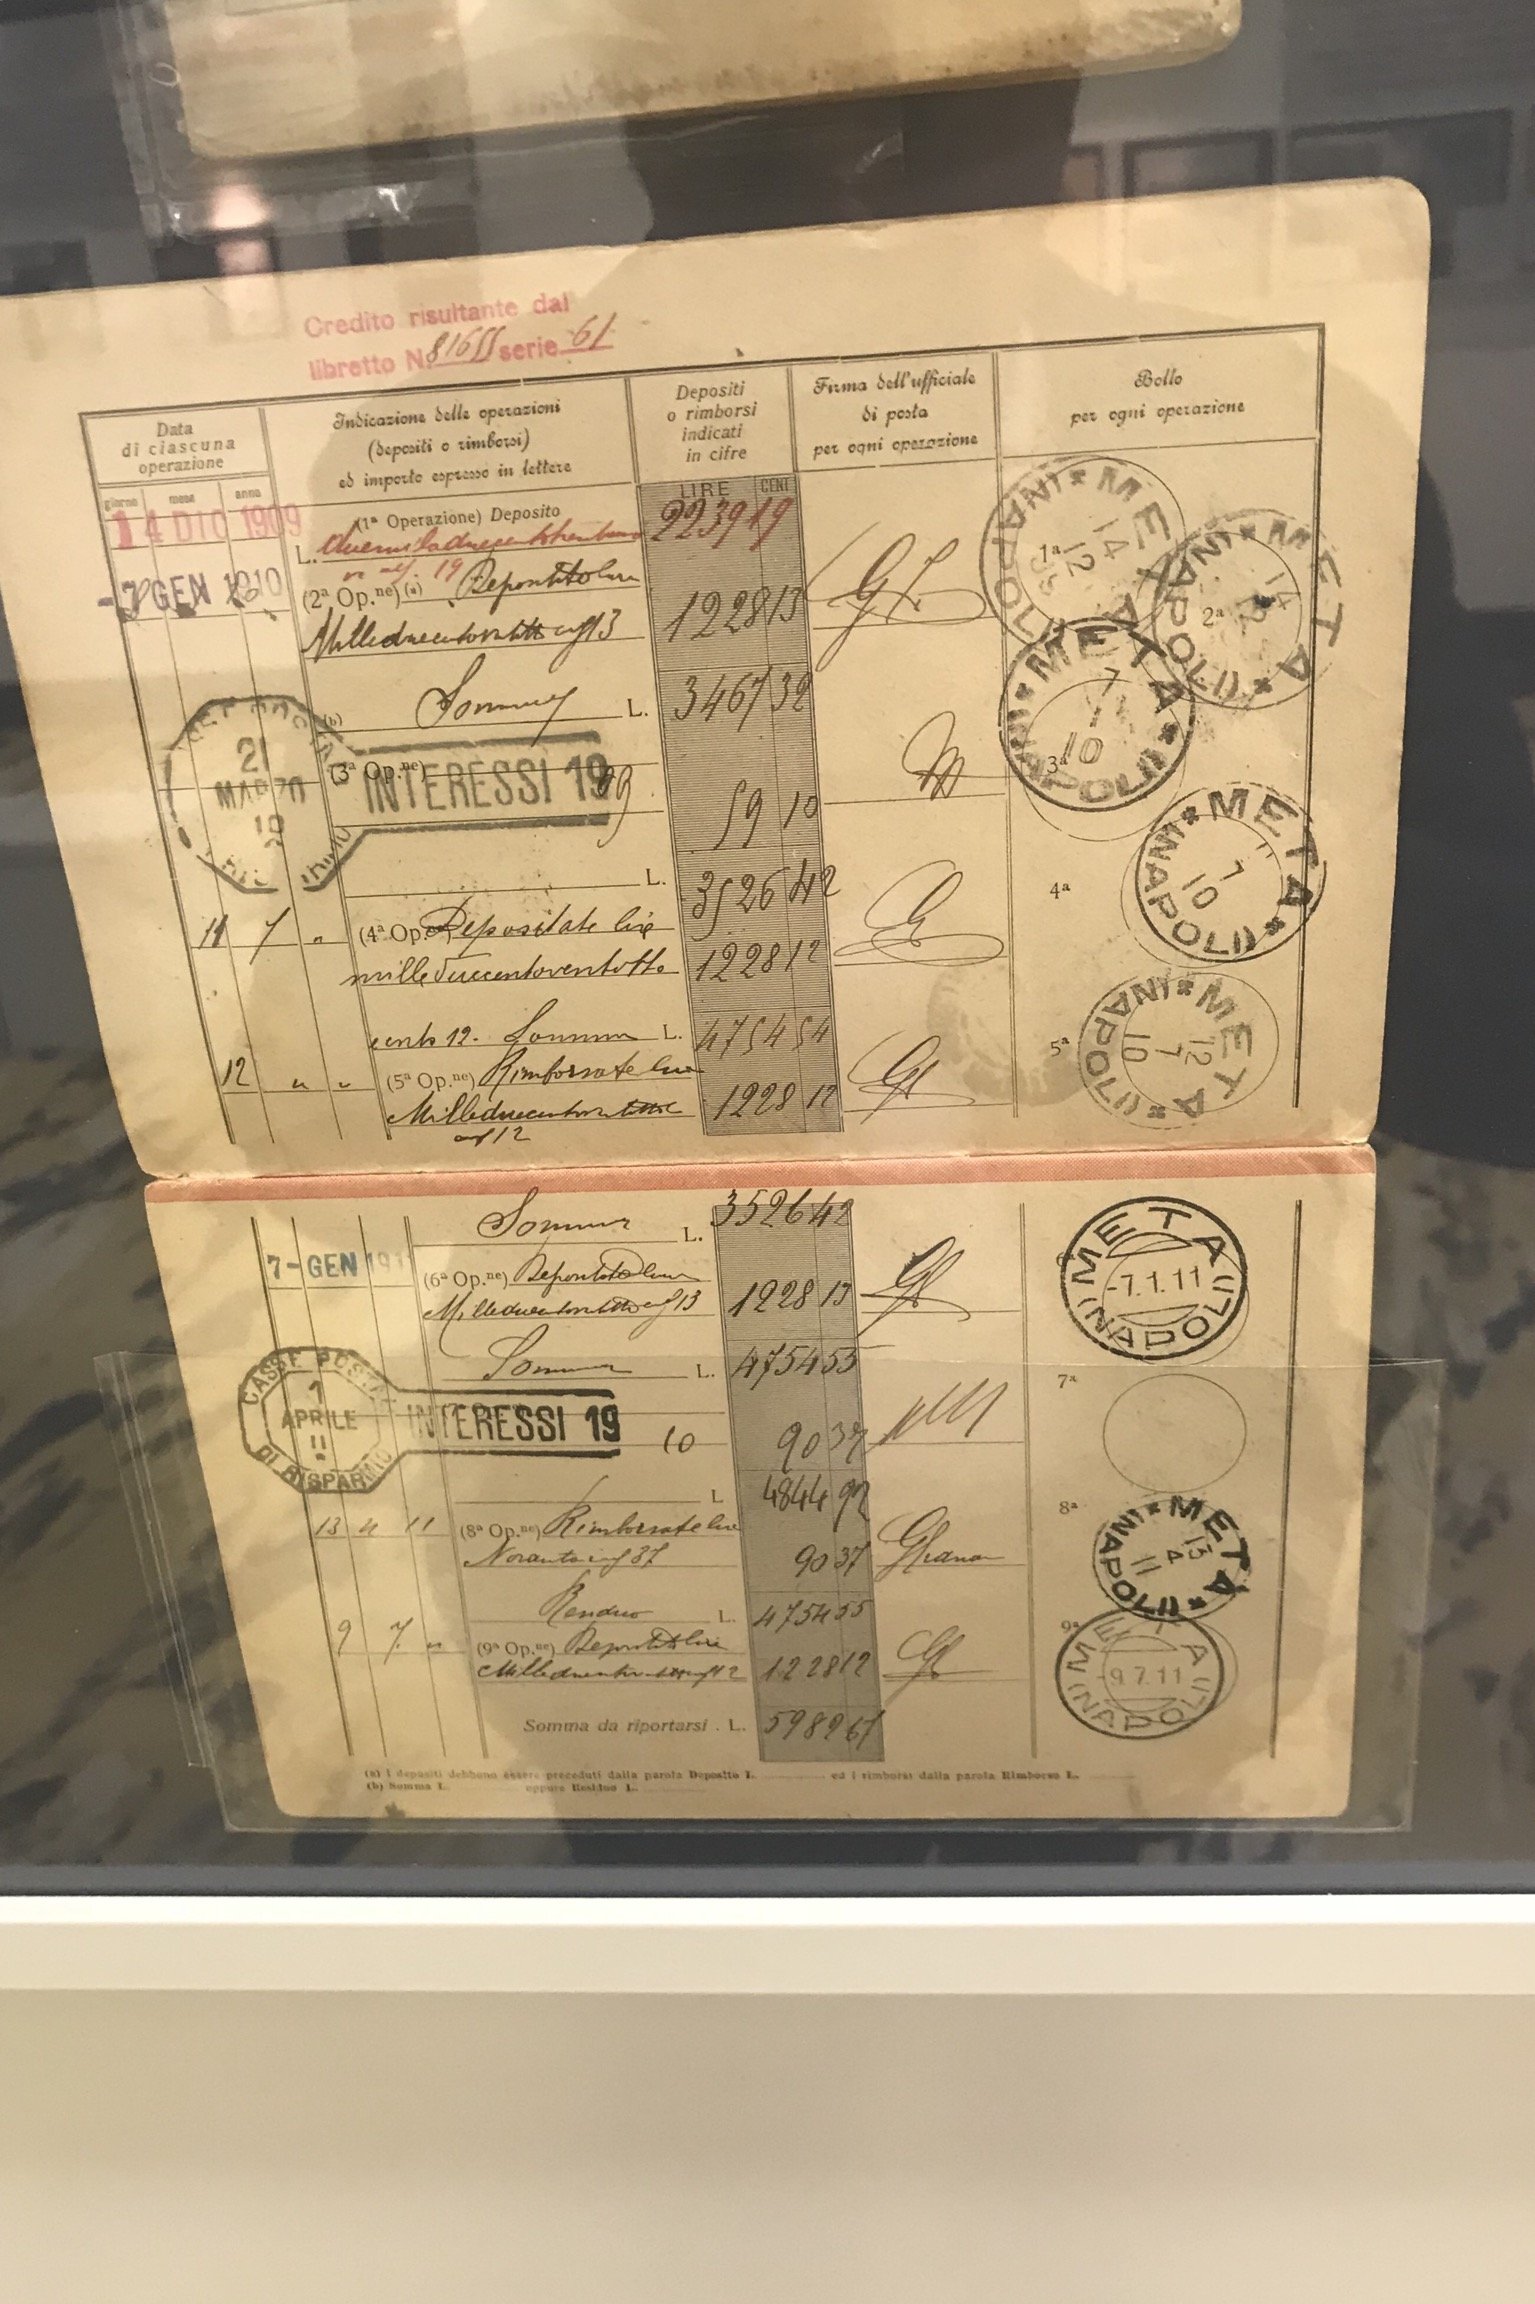 Credito risultante dal
libretto N. 81655 serie 61
Data
di ciascuna
operazione
Indicazione delle operazioni
(depositi o rimborsi)
ed importo espresso in lettere
Depositi
o rimborsi
indicati
in cifre
Firma dell'ufficiale
di posta
per ogni operazione
Bollo
per ogni operazione
giorno mese anno
LIRE CENT
14 DIC 1909
(1ª Operazione) Deposito
2239 19
L.
19
-7 GEN 1910
(2ª Op.ne) (a)
1228 13
13
Somma L. 3467 32
(b)
21
MAR
(3ª Op.ne)
INTERESSI 19 09
59 10
L. 3526 42
11 7 "
(4ª Op.ne) Depositate lire
milleduecentoventotto
1228 12
cents 12. Somma L. 4754 54
12 " "
(5ª Op.ne) Rimborsate lire
Milleduecentoventotto
1228 12
12
1ª
META (NAPOLI)
14
12
09
2ª
META (NAPOLI)
14
3ª
META (NAPOLI)
7
1
10
4ª
META (NAPOLI)
11
7
10
5ª
META (NAPOLI)
12
7
10
Somma L. 3526 42
7-GEN 191
(6ª Op.ne)
13
1228 13
Somma L. 4754 55
CASSE POSTALI
DI RISPARMIO
1
APRILE
11
INTERESSI 19 10
90 37
L. 4844 92
13 4 11
(8ª Op.ne) Rimborsate lire
Novanta 37
90 37
L. 4754 55
9 7 "
(9ª Op.ne)
12
1228 12
Somma da riportarsi . L. 5982 67
META (NAPOLI)
-7.1.11
7ª
8ª
META (NAPOLI)
13
4
11
9ª
META (NAPOLI)
-9.7.11
(a) I depositi debbono essere preceduti dalla parola Deposito L. ed i rimborsi dalla parola Rimborso L.
(b) Somma L. oppure Residuo L.